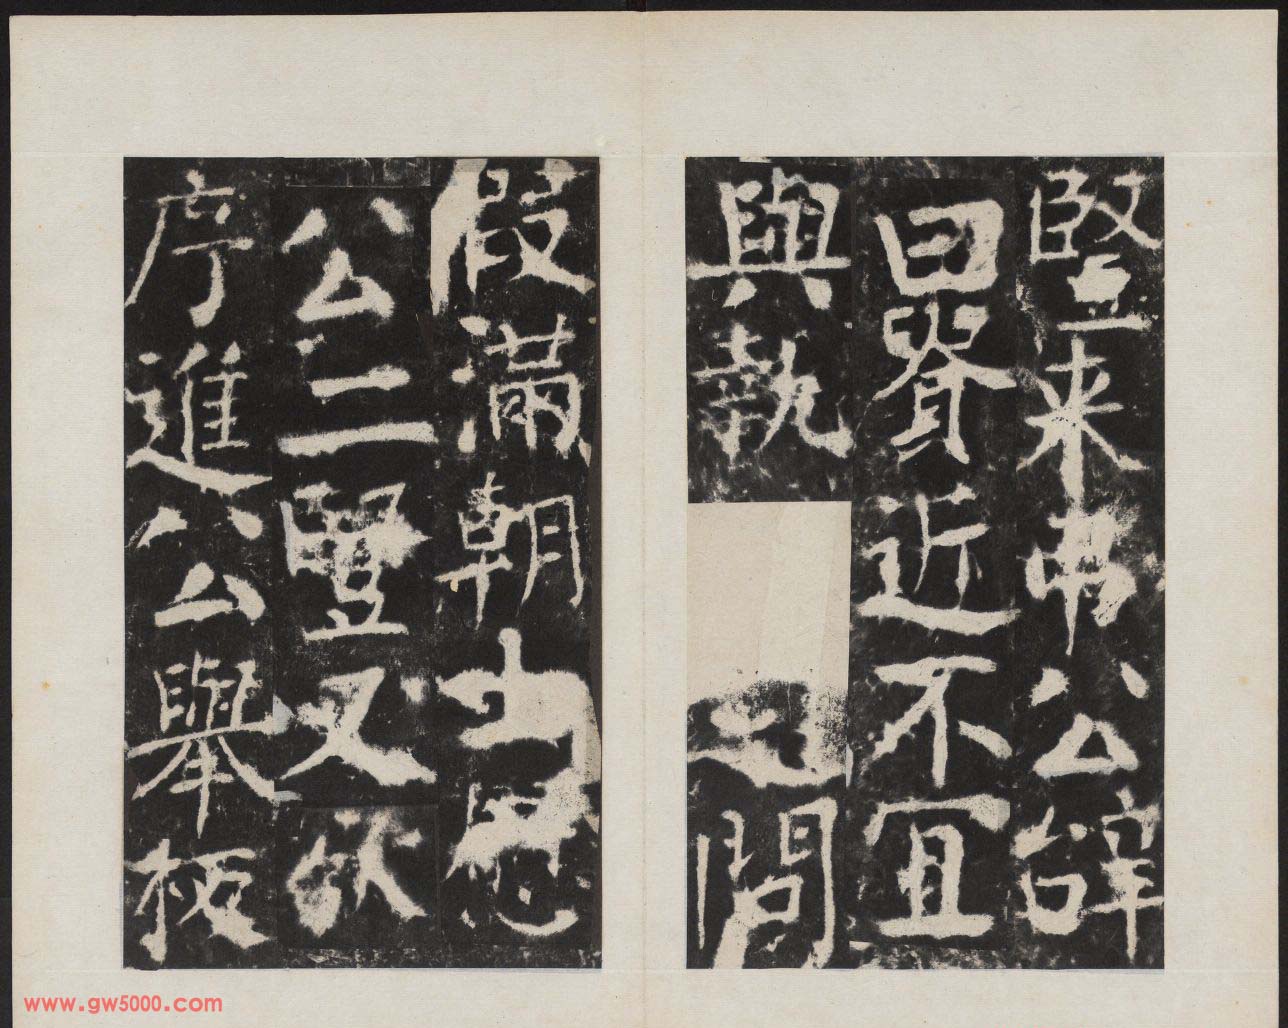 竪来公辞
曰近不宜
與執問
假滿朝士
公二豎又欲
序進公舉板
www.gw5000.com